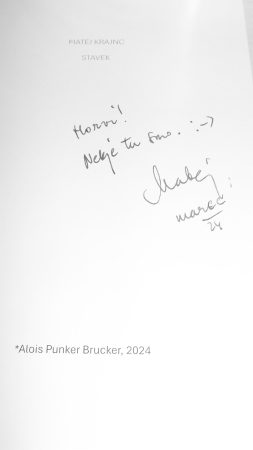 MATEJ KRAJNC
STAVEK
Nekje tu smo. :->
Matej
marec
24
*Alois Punker Brucker, 2024